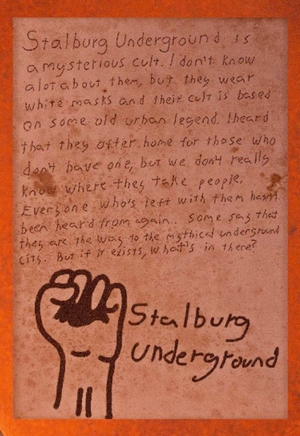 Stalburg Underground is
a mysterious cult. I don't know
a lot about them, but they wear
white masks and their cult is based
on some old urban legend. I heard
that they offer home for those who
don't have one, but we don't really
know where they take people.
Everyone who's left with them hasn't
been heard from again. Some say that
they are the way to the mythical underground
city. But if it exists, what's in there?
Stalburg
Underground